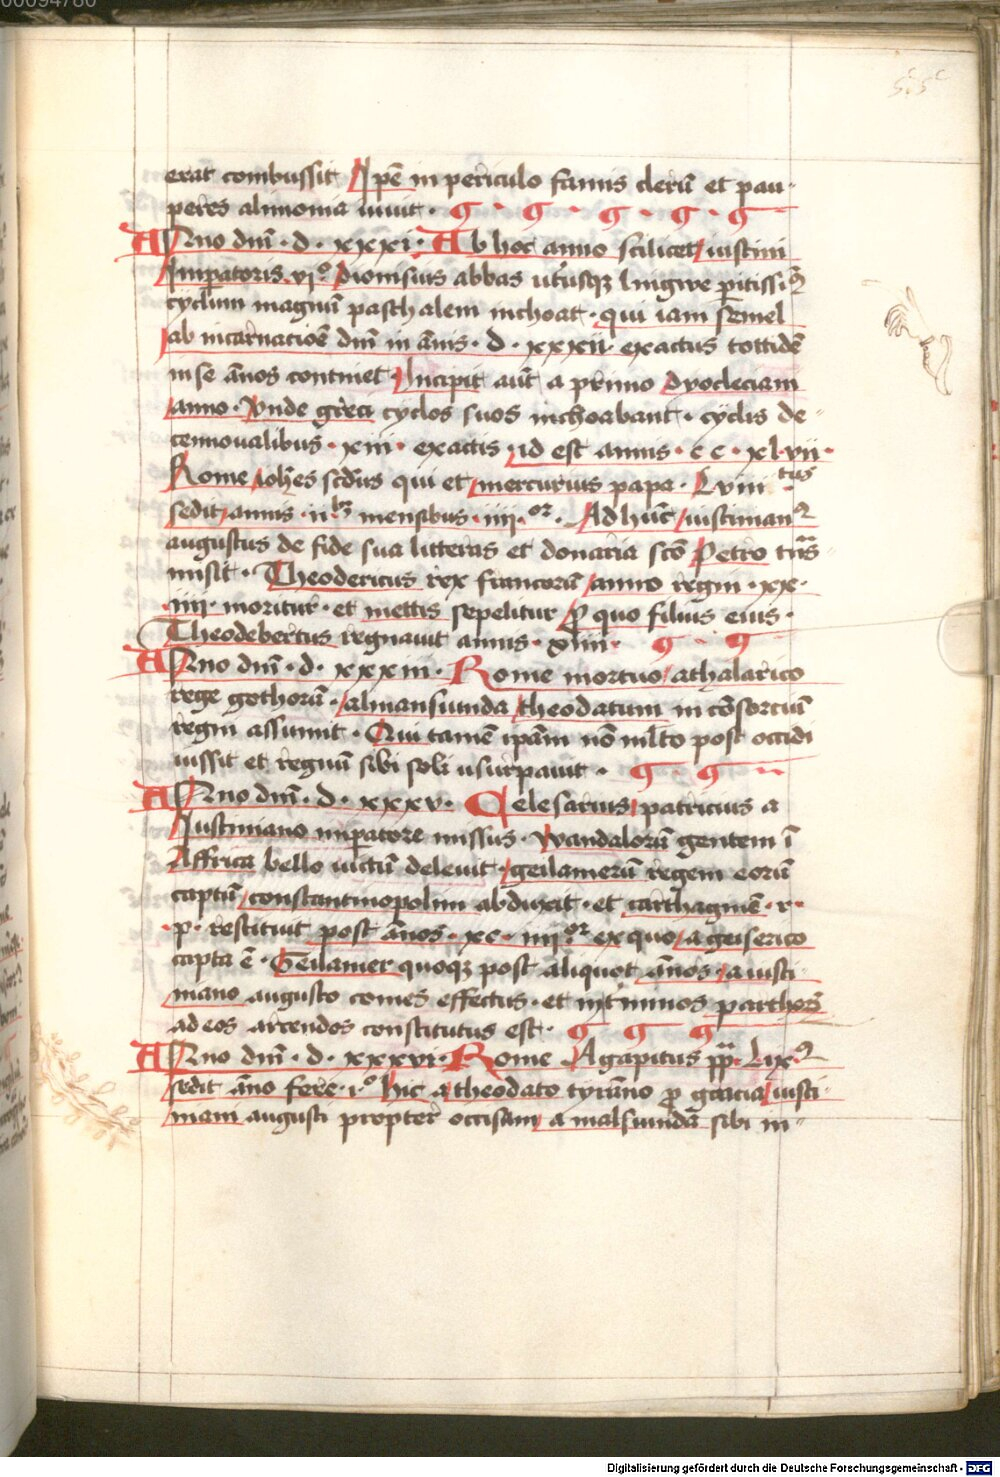 erat combussit Ipe᷎ in periculo famis clerū et pau-
peres alimonia iuuit ·
Anno dm̄ · d · xxxi · Ab hoc anno scilicet iustini
Imperatoris vi° dionisius abbas utriusqꝫ lingwe peritissi9
cyclum magnū paschalem inchoat · qui iam semel
ab incarnacioē dm̄ in ānis · d · xxxii exactus tottidē
in se ānos continet Incipit aūt a primo dyocleciani
anno · Vnde greci cyclos suos inchoabant · cyclis de-
cennoualibus · xiii · exactis · id est annis · c c · xlvii ·
Rome ioh̄es scd̄us qui et mercurius papa · Lviii tus
sedit annis · ii bꝫ mensibus · iiii · or · Adhuc iustinian9
augustus de fide sua litteras et donaria scō Petro tr̄ns-
misit · Theodericus rex francorū anno regni · xx ·
iiii · moritur · et mettis sepelitur ꝓ quo filius eius ·
Theodebertus regnauit annis · xiiii ·
Anno dm̄ · d · xxxiii · Rome mortuo athalarico
rege gothorū · almansuinda theodatum in cōsorciū
regni assumit · Qui tamē ipām nō ml̄to post occidi
iussit et regnū sibi soli usurpauit ·
Anno dm̄ · d · xxxv · Belesarius patricius a
Iustiniano imperatore missus · wandalorū gentem ī
Affrica bello uictū deleuit · geilamerū regem eorū
captū constantinopolim abduxit · et carthaginē · r ·
· p · restituit post ānos · xc · iiii or ex quo a geiserico
capta ē · Geilamer quoqꝫ post aliquot ānos · a iusti-
niano augusto comes effectus · et in t̄minos parthor̄
ad eos arcendos constitutus est ·
Anno dm̄ · d · xxxvi · Rome Agapitus pp̄ · Lix9
sedit āno fere · i° hic a theodato tyrāno ꝓ gracia iusti-
niani augusti propter occisam a malsuindā sibi in-
Digitalisierung gefördert durch die Deutsche Forschungsgemeinschaft · DFG